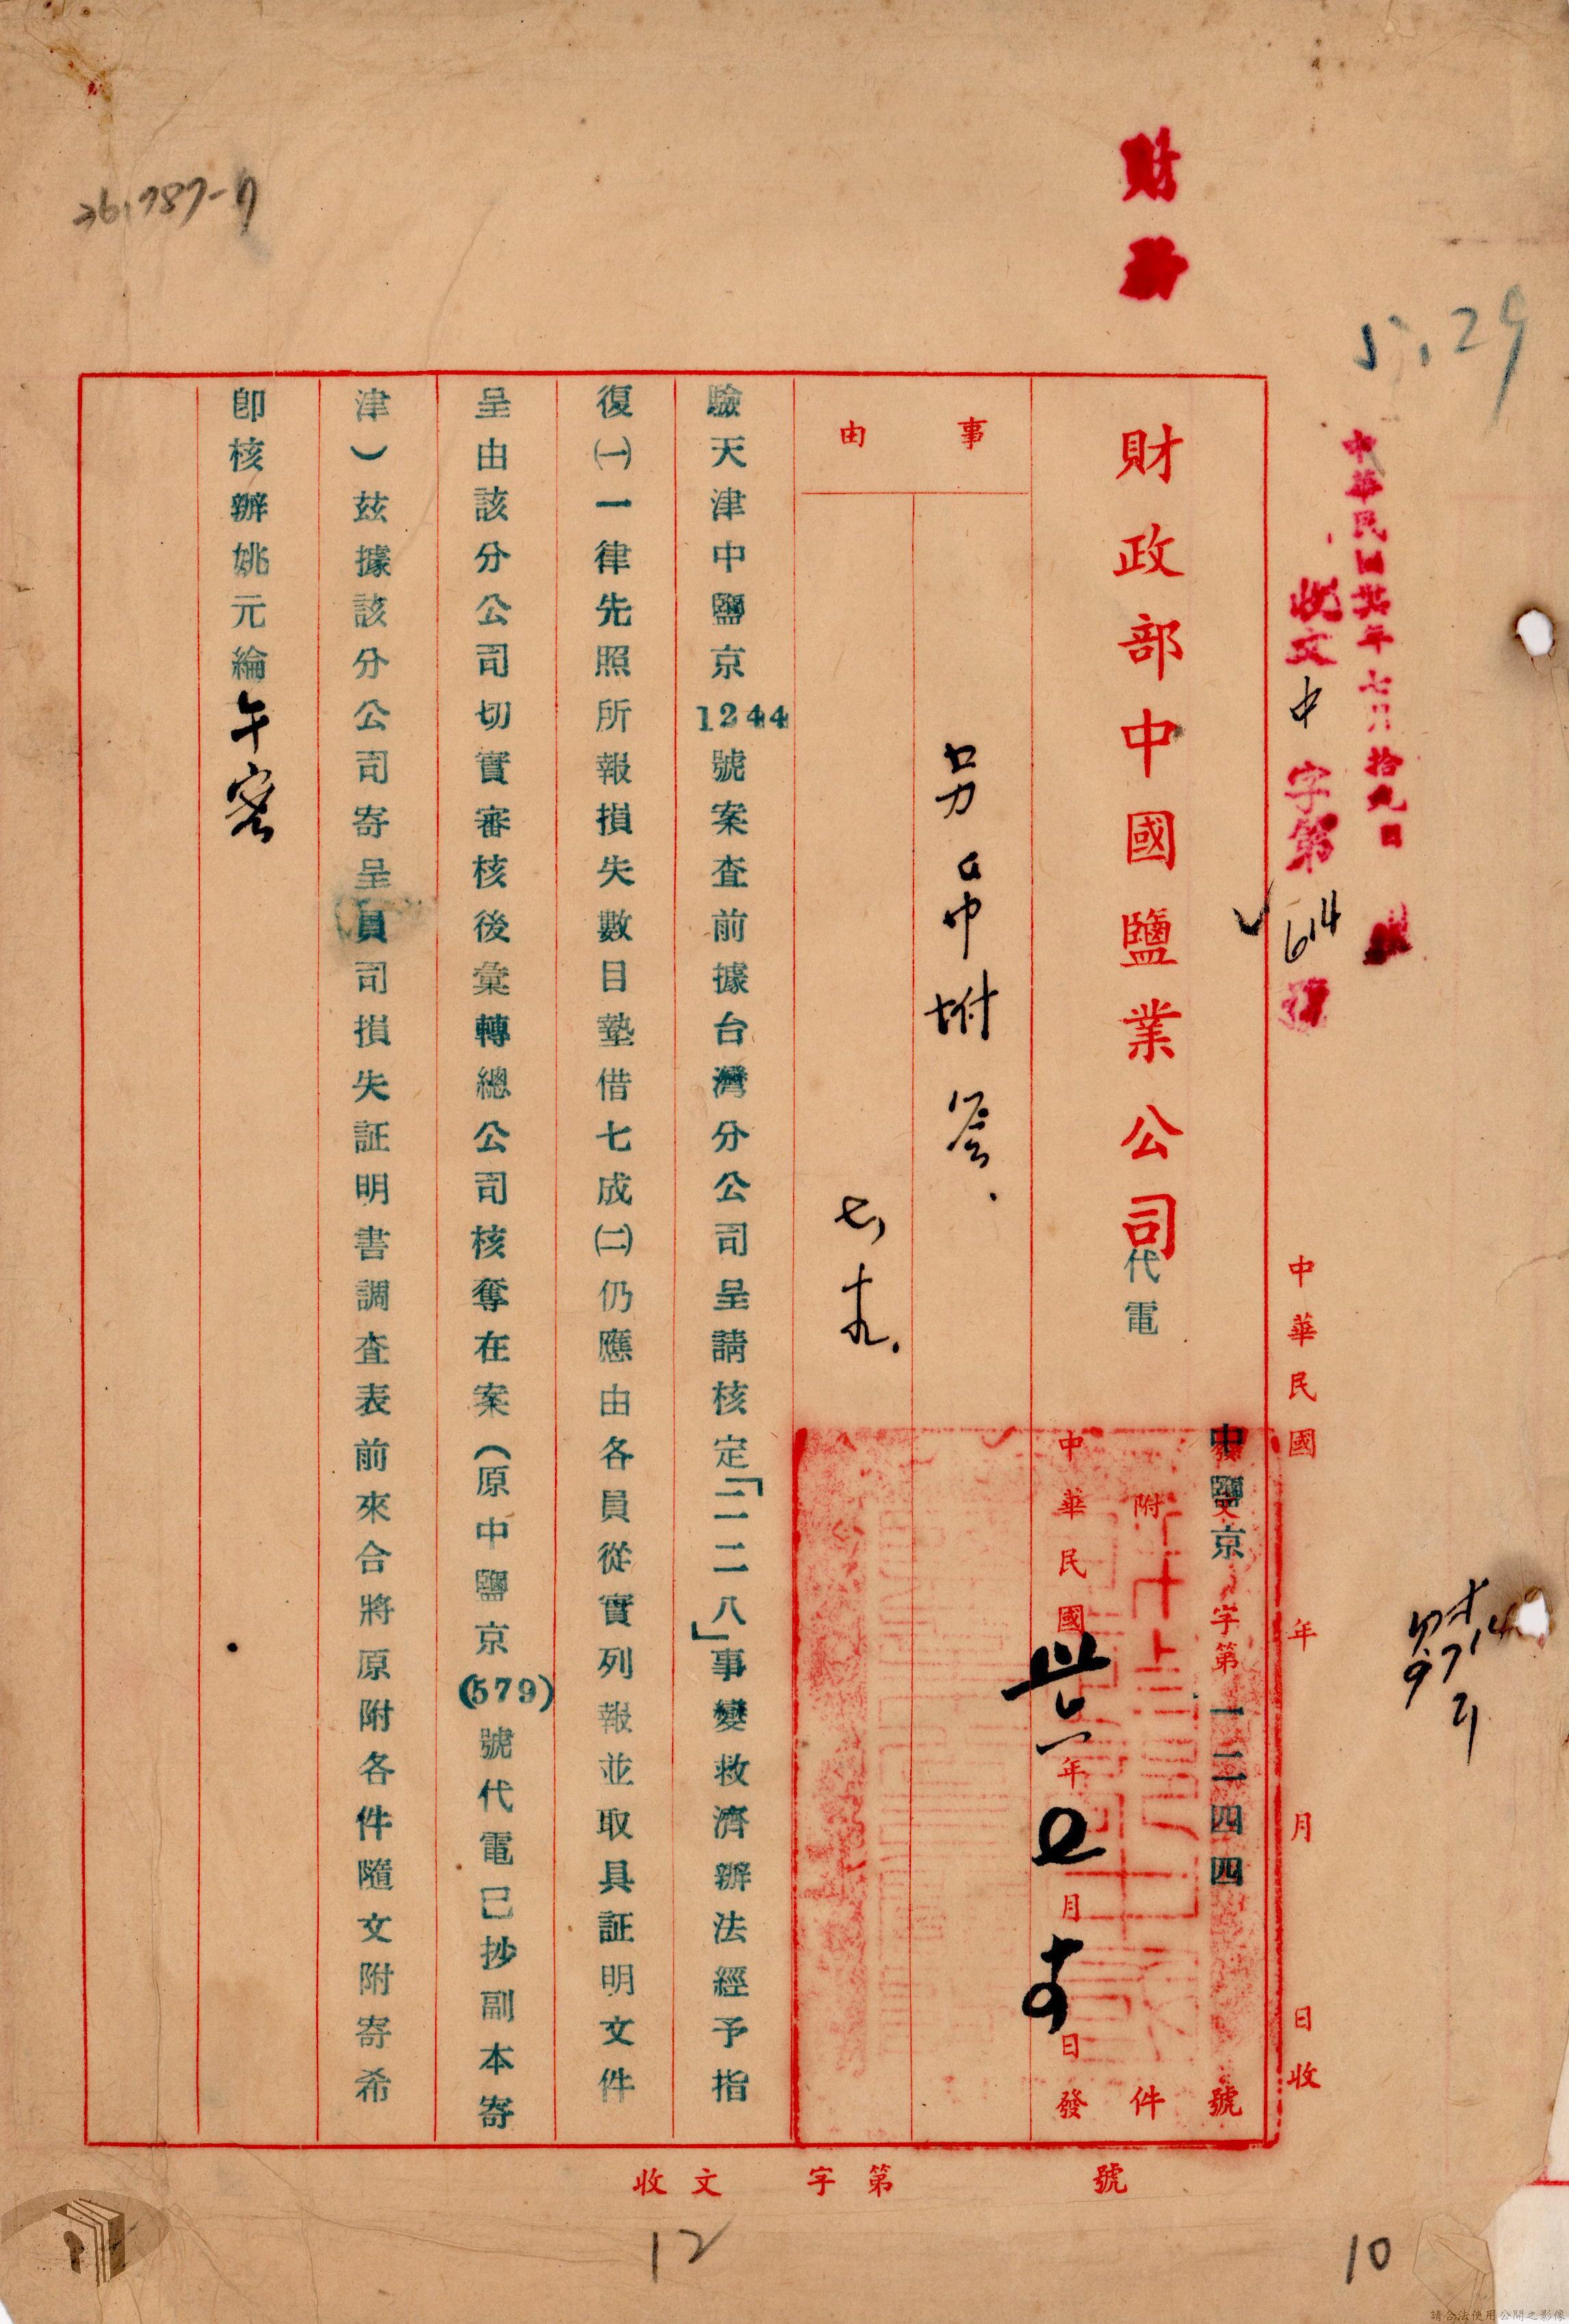 財務
26,787-7
5.29
中華民國卅年七月拾九日
收文中字第614號
中華民國 年 月 日收
中鹽京字第一二四四號
附件
中華民國卅六年 月 日發
財政部中國鹽業公司代電
事由
另呈中附簽
七、十九.
驗天津中鹽京1244號案查前據台灣分公司呈請核定「二二八」事變救濟辦法經予指
復㈠一律先照所報損失數目墊借七成㈡仍應由各員從實列報並取具証明文件
呈由該分公司切實審核後彙轉總公司核奪在案（原中鹽京(579)號代電已抄副本寄
津）茲據該分公司寄呈員司損失証明書調查表前來合將原附各件隨文附寄希
卽核辦姚元綸午
收文 字第 號
12
10
請合法使用公開之影像